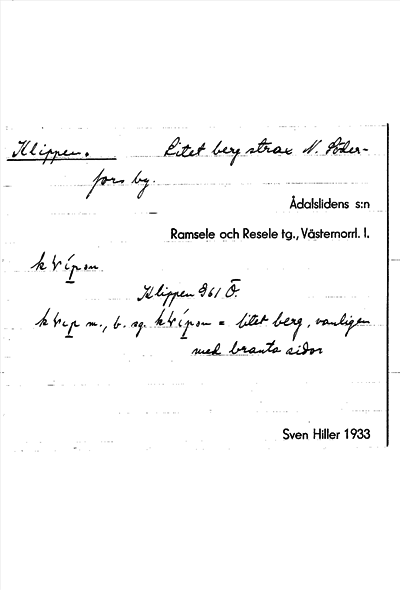 Klippen. Litet berg strax N. Söder-
fors by.
Ådalslidens s:n
Ramsele och Resele tg., Västernorrl. l.
Klippen 961 Ö.
m., b. sg. = litet berg, vanligen
med branta sidor
Sven Hiller 1933